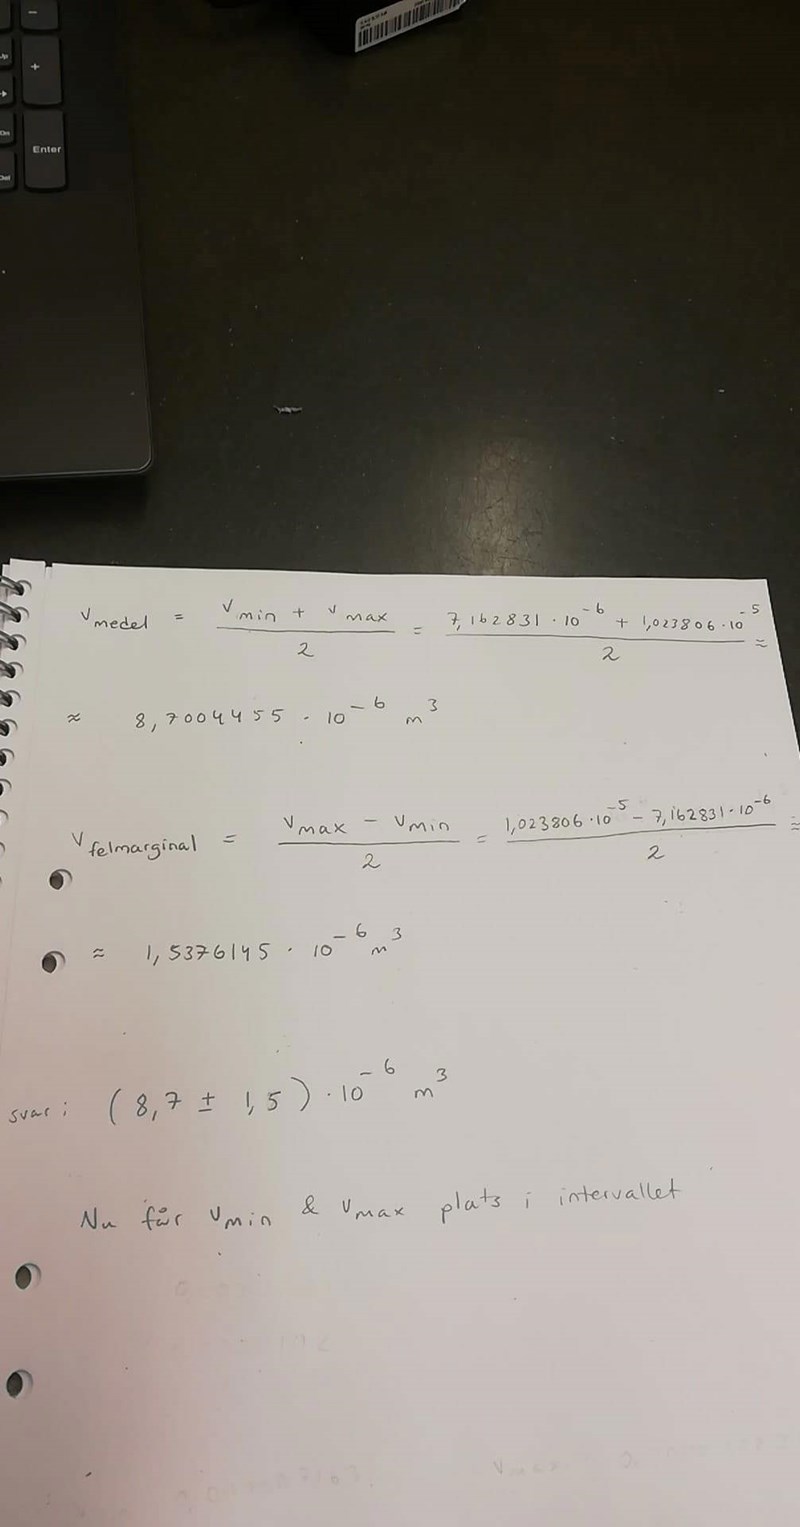 -
+
Enter
V medel = V min + V max / 2 = 7,162831 · 10^-6 + 1,023806 · 10^-5 / 2 ≈
≈ 8,7004455 · 10^-6 m^3
V felmarginal = V max - V min / 2 = 1,023806 · 10^-5 - 7,162831 · 10^-6 / 2 ≈
≈ 1,5376145 · 10^-6 m^3
svar: (8,7 ± 1,5) · 10^-6 m^3
Nu får V min & V max plats i intervallet